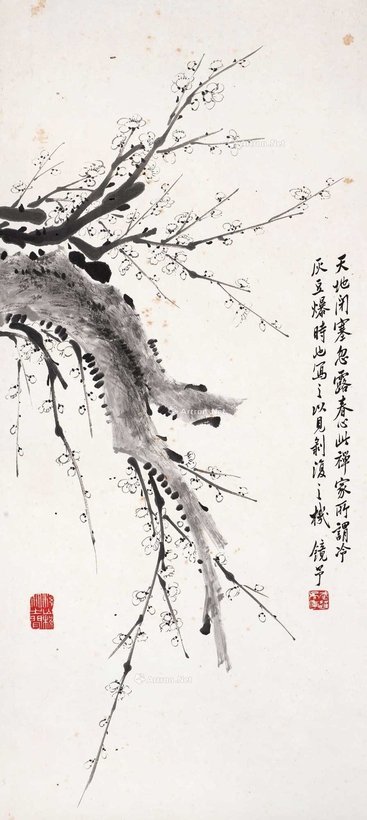 天地闭塞忽露春心此禅家所謂冷
灰豆爆時也寫之以見剝復之機 鏡予
Artron.Net
Artron.Net
Artron.Net